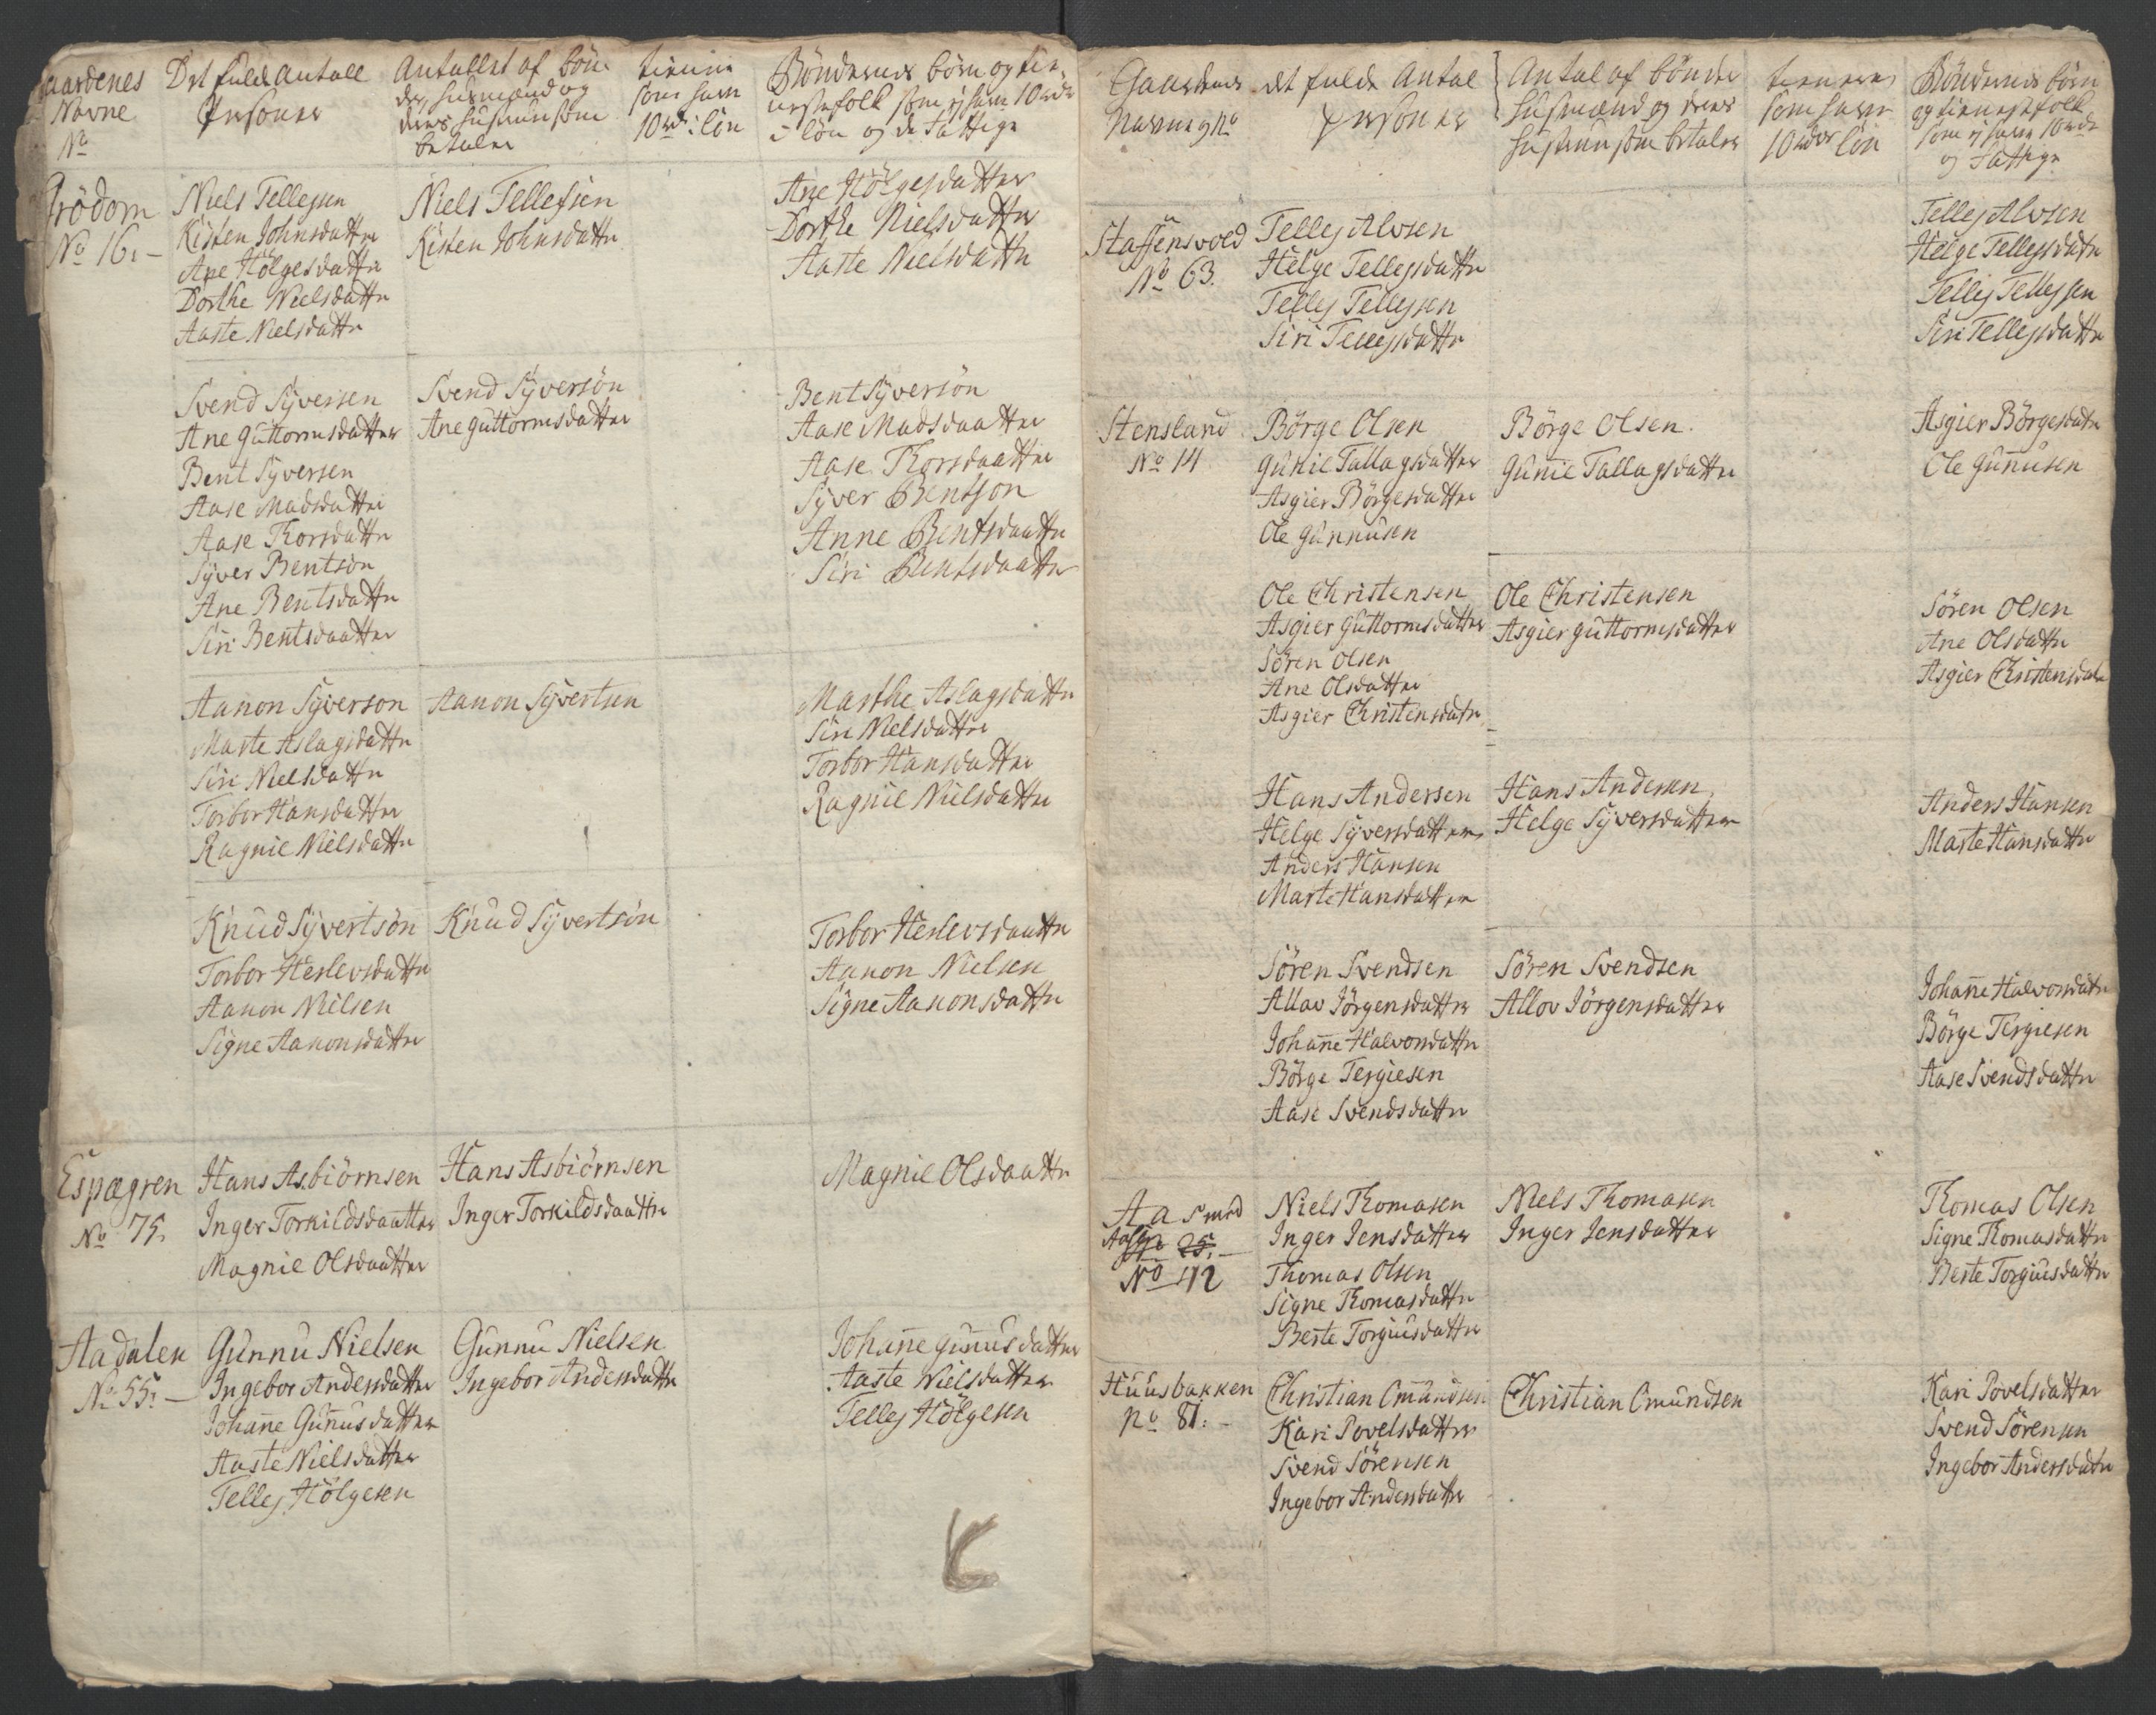 Gaardenes
Navne
No
Det fulde Antall
Personer
Antallet af bøn
der, husmænd og
deres hustruer som
betaler
som have
10 rdr: løn
Bøndernes børn og tie-
nestefolk som ej have 10 rdr
i løn og de Fattige
Frödom
No 16. -
Niels Tellefsen
Kisten Johnsdatter
Ane Hölgesdatter
Dorthe Nielsdatter
Aaste Nielsdatter
Niels Tellefsen
Kisten Johnsdatter
Ane Hölgesdatter
Dorthe Nielsdatter
Aaste Nielsdatter
Svend Syversen
Ane Guttormsdatter
Bent Syversen
Aase Madsdatter
Aase Thorsdatter
Syver Bentsön
Ane Bentsdatter
Siri Bentsdaatter
Svend Syversön
Ane Guttormsdatter
Bent Syversön
Aase Madsdaatter
Aase Thorsdaatter
Syver Bentson
Anne Bentsdaatter
Siri Bentsdaatter
Aanon Syverson
Marte Aslagsdatter
Siri Nielsdatter
Torbor Hansdatter
Ragnil Nielsdatter
Aanon Syvertsen
Marthe Aslagsdatter
Siri Nielsdatter
Torbor Hansdatter
Ragnil Nielsdatter
Knud Syvertsön
Torbor Herlevsdatter
Aanon Nielsen
Signe Aanonsdatter
Knud Syvertsön
Torbor Herlevsdaatter
Aanon Nielsen
Signe Aanonsdatter
Espegren
No 75.
Hans Asbiörnsen
Inger Torkildsdaatter
Magnil Olsdaatter
Hans Asbiörnsen
Inger Torkildsdaatter
Magnil Olsdaatter
Aadalen
No 55. -
Gunnu Nielsen
Ingebor Andersdatter
Johanne Gunnusdatter
Aaste Nielsdatter
Tellef Hölgesen
Gunnu Nielsen
Ingebor Andersdatter
Johanne Gunnusdatter
Aaste Nielsdatter
Tellef Hölgesen
Gaardenes
Navne og No
det fulde Antal
Personer
Antal af bönder
husmænd og deres
hustruer som betaler
tienere
som have
10 rdr løn
Bøndernes børn
og tienestefolk
som ej have 10 rdr
og Fattige
Staffensvoed
No 63.
Tellef Alvsen
Helge Tellefsdatter
Tellef Tellefsen
Siri Tellefsdatter
Tellef Alvsen
Helge Tellefsdatter
Tellef Tellefsen
Siri Tellefsdatter
Stensland
No 14
Börge Olsen
Gunil Tallagsdatter
Asgier Börgesdatter
Ole Gunnusen
Börge Olsen.
Gunil Tallagsdatter
Asgier Börgesdatr
Ole Gunnusen
Ole Christensen
Asgier Guttormsdatter
Sören Olsen
Ane Olsdatter
Asgier Christensdatr
Ole Christensen
Asgier Guttormsdatter
Sören Olsen
Ane Olsdatter
Asgier Christensdatr
Hans Andersen
Helge Syversdatter
Anders Hansen
Marte Hansdatter
Hans Andersen
Helge Syversdatter
Anders Hansen
Marte Hansdatter
Sören Svendsen
Allov Jörgensdatter
Johanne Halvorsdatter
Börge Tergiesen
Aase Svendsdatter
Sören Svendsen
Allov Jörgensdatter
Johanne Halvorsdatr
Börge Tergiesen
Aase Svendsdatter
Aas med
25. -
No 112
Niels Thomasen
Inger Jensdatter
Thomas Olsen
Signe Thomasdatter
Berte Torgiusdatter
Niels Thomasen
Inger Jensdatter
Thomas Olsen
Signe Thomasdatter
Berte Torgiusdatter
Huusbakken
No 81. -
Christian Omundsen
Kari Povelsdatter
Svend Sörensen
Ingebor Andersdatter
Christian Omundsen
Kari Povelsdatter
Svend Sörensen
Ingebor Andersdatr